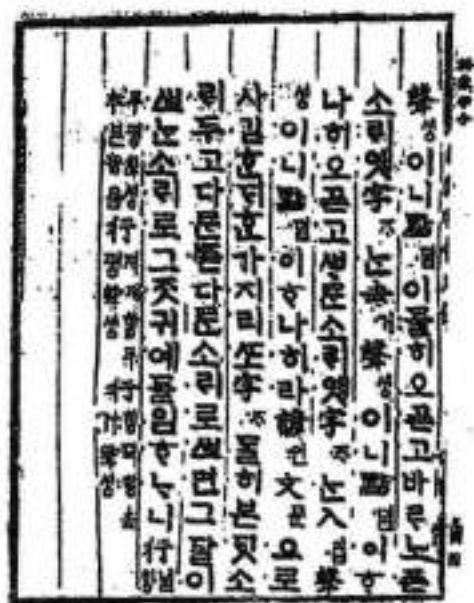 聲셩이니點뎜이둘히오곧고바ᄅᆞ노ᄑᆞᆫ
소리옛字ᄌᆞᄂᆞᆫ去거聲셩이니點뎜이ᄒᆞ
나히오곧고ᄲᆞᄅᆞᆫ소리옛字ᄌᆞᄂᆞᆫ入입聲
셩이니點뎜이ᄒᆞ나히라諺언文문으로
사김ᄒᆞᆫᄃᆡᄒᆞᆫ가지라ᄯᅩ字ᄌᆞ둘히본ᄃᆡ소
리두고다ᄅᆞᆫᄠᅳᆮ다ᄅᆞᆫ소리로ᄡᅳ면그달이
ᄡᅳᄂᆞᆫ소리로그ᄌᆞᆺ귀예돌임ᄒᆞᄂᆞ니行녈ᄒᆡᆼ